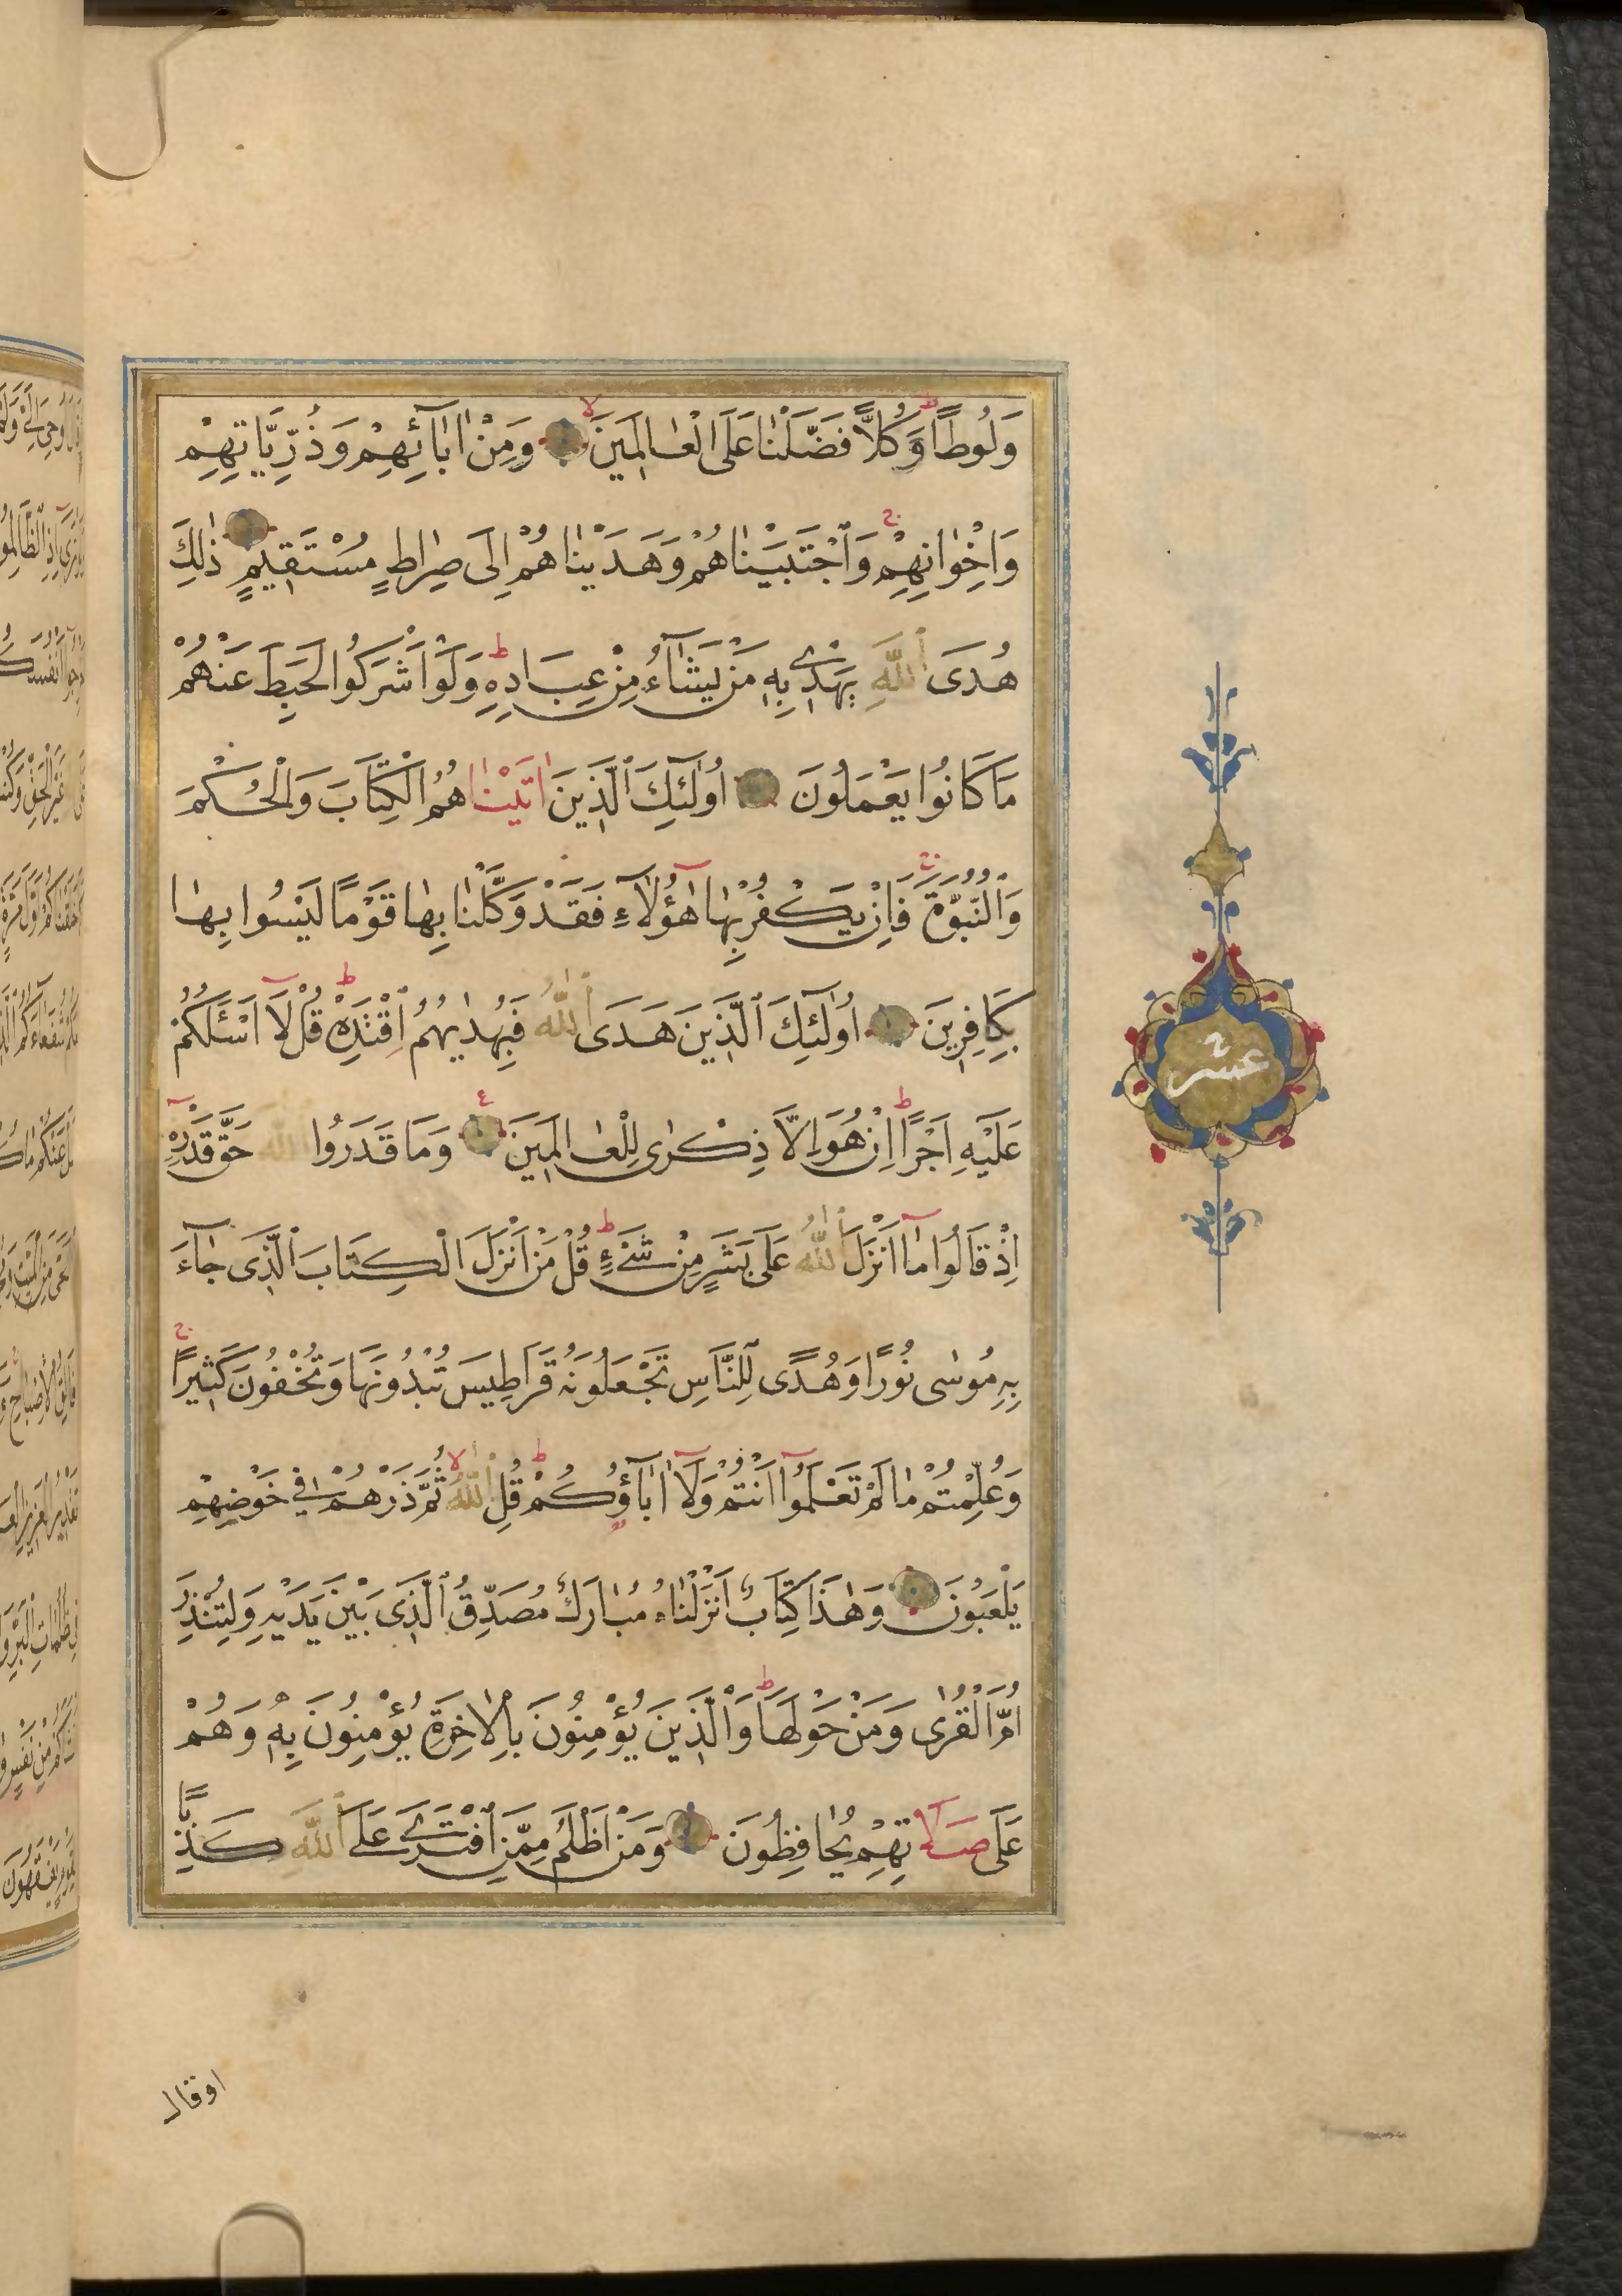 وَلُوطًا وَكُلًّا فَضَّلْنَا عَلَى الْعَالَمِينَ وَمِنْ اٰبَائِهِمْ وَذُرِّيَّاتِهِمْ
وَاِخْوَانِهِمْ وَاجْتَبَيْنَاهُمْ وَهَدَيْنَاهُمْ اِلَى صِرَاطٍ مُسْتَقِيمٍ ذٰلِكَ
هُدَى اللّٰهِ يَهْدِي بِهِ مَنْ يَشَآءُ مِنْ عِبَادِهِ وَلَوْ اَشْرَكُوا لَحَبِطَ عَنْهُمْ
مَا كَانُوا يَعْمَلُونَ اُولٰئِكَ الَّذِينَ اٰتَيْنَاهُمُ الْكِتَابَ وَالْحُكْمَ
وَالنُّبُوَّةَ فَاِنْ يَكْفُرْ بِهَا هٰؤُلَآءِ فَقَدْ وَكَّلْنَا بِهَا قَوْمًا لَيْسُوا بِهَا
بِكَافِرِينَ اُولٰئِكَ الَّذِينَ هَدَى اللّٰهُ فَبِهُدٰيهُمُ اقْتَدِهْ قُلْ لَا اَسْئَلُكُمْ
عَلَيْهِ اَجْرًا اِنْ هُوَ اِلَّا ذِكْرٰى لِلْعَالَمِينَ وَمَا قَدَرُوا اللّٰهَ حَقَّ قَدْرِهِ
اِذْ قَالُوا مَا اَنْزَلَ اللّٰهُ عَلَى بَشَرٍ مِنْ شَيْءٍ قُلْ مَنْ اَنْزَلَ الْكِتَابَ الَّذِي جَآءَ
بِهِ مُوسٰى نُورًا وَهُدًى لِلنَّاسِ تَجْعَلُونَهُ قَرَاطِيسَ تُبْدُونَهَا وَتُخْفُونَ كَثِيرًا
وَعُلِّمْتُمْ مَا لَمْ تَعْلَمُوا اَنْتُمْ وَلَا اٰبَآؤُكُمْ قُلِ اللّٰهُ ثُمَّ ذَرْهُمْ فِي خَوْضِهِمْ
يَلْعَبُونَ وَهٰذَا كِتَابٌ اَنْزَلْنَاهُ مُبَارَكٌ مُصَدِّقُ الَّذِي بَيْنَ يَدَيْهِ وَلِتُنْذِرَ
اُمَّ الْقُرٰى وَمَنْ حَوْلَهَا وَالَّذِينَ يُؤْمِنُونَ بِالْاٰخِرَةِ يُؤْمِنُونَ بِهِ وَهُمْ
عَلَى صَلَاتِهِمْ يُحَافِظُونَ وَمَنْ اَظْلَمُ مِمَّنِ افْتَرٰى عَلَى اللّٰهِ كَذِبًا
عشر
اوقال